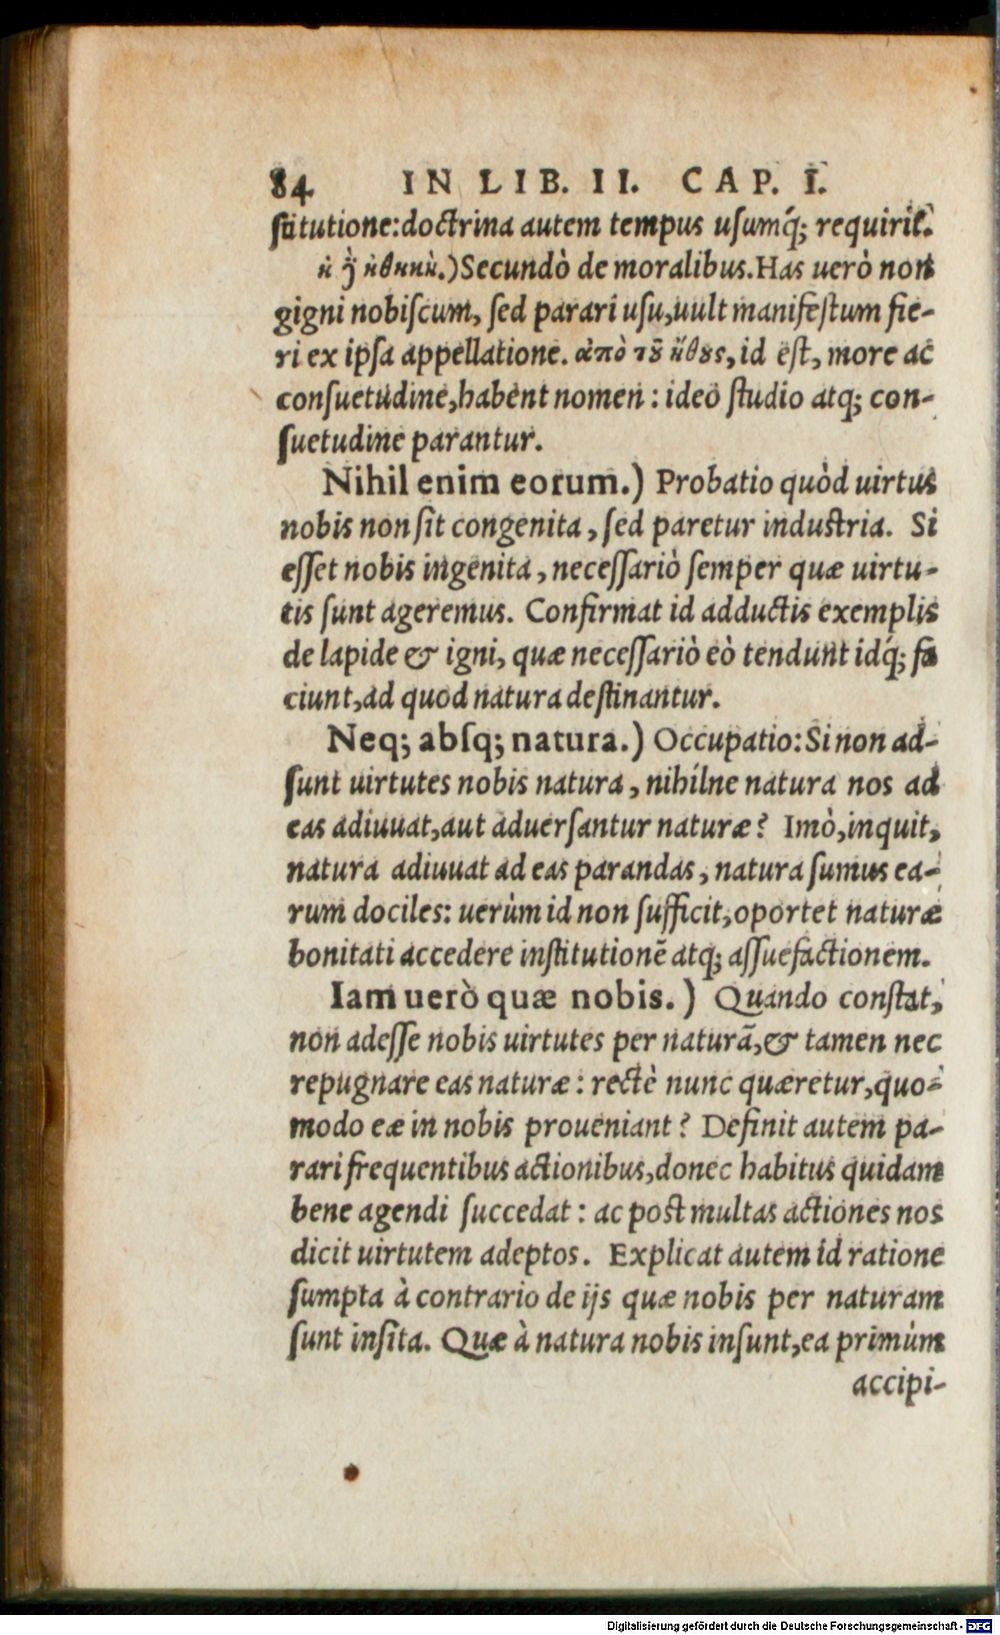 84 IN LIB. II. CAP. I.
ſtitutione: doctrina autem tempus uſumq́; requirit.
ἡ δ̓ ἠθικὴ.) Secundò de moralibus. Has uerò non
gigni nobiſcum, ſed parari uſu, uult manifeſtum fie-
ri ex ipſa appellatione. ἀπὸ τȣ͂ ἤθȣς, id eſt, more ac
conſuetudine, habent nomen: ideo ſtudio atq; con-
ſuetudine parantur.
Nihil enim eorum.) Probatio quòd uirtus
nobis non ſit congenita, ſed paretur induſtria. Si
eſſet nobis ingenita, neceſſariò ſemper quæ uirtu-
tis ſunt ageremus. Confirmat id adductis exemplis
de lapide & igni, quæ neceſſariò eò tendunt idq́; fa
ciunt, ad quod natura deſtinantur.
Neq; abſq; natura.) Occupatio: Si non ad-
ſunt uirtutes nobis natura, nihílne natura nos ad
eas adiuuat, aut aduerſantur naturæ? Imò, inquit,
natura adiuuat ad eas parandas, natura ſumus ea-
rum dociles: uerùm id non ſufficit, oportet naturæ
bonitati accedere inſtitutionē atq; aſſuefactionem.
Iam uerò quæ nobis.) Quando conſtat,
non adeſſe nobis uirtutes per naturā, & tamen nec
repugnare eas naturæ: rectè nunc quæretur, quo-
modo eæ in nobis proueniant? Definit autem pa-
rari frequentibus actionibus, donec habitus quidam
bene agendi ſuccedat: ac poſt multas actiones nos
dicit uirtutem adeptos. Explicat autem id ratione
ſumpta à contrario de ijs quæ nobis per naturam
ſunt inſita. Quæ à natura nobis inſunt, ea primùm
accipi-
Digitalisierung gefördert durch die Deutsche Forschungsgemeinschaft - DFG